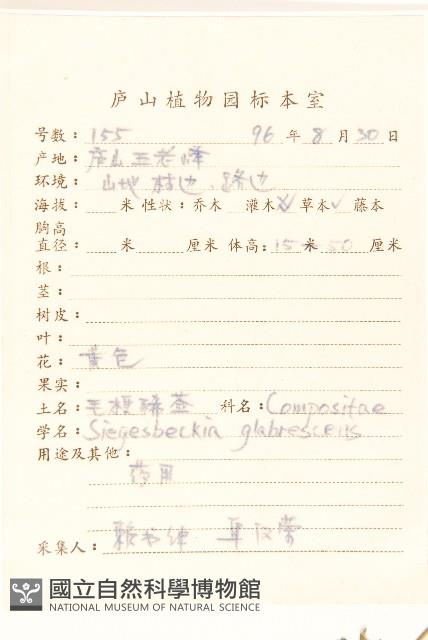 庐山植物园标本室
号数：155 96年8月30日
产地：庐山五老峰
环境：山地林边、路边
海拔： 米 性状：乔木 灌木 草本✓ 藤本
胸高
直径： 米 厘米 体高：15 米 50 厘米
根：
茎：
树皮：
叶：
花：黄色
果实：
土名：毛梗豨莶 科名：Compositae
学名：Siegesbeckia glabrescens
用途及其他：
药用
采集人：赖书绅
國立自然科學博物館
NATIONAL MUSEUM OF NATURAL SCIENCE